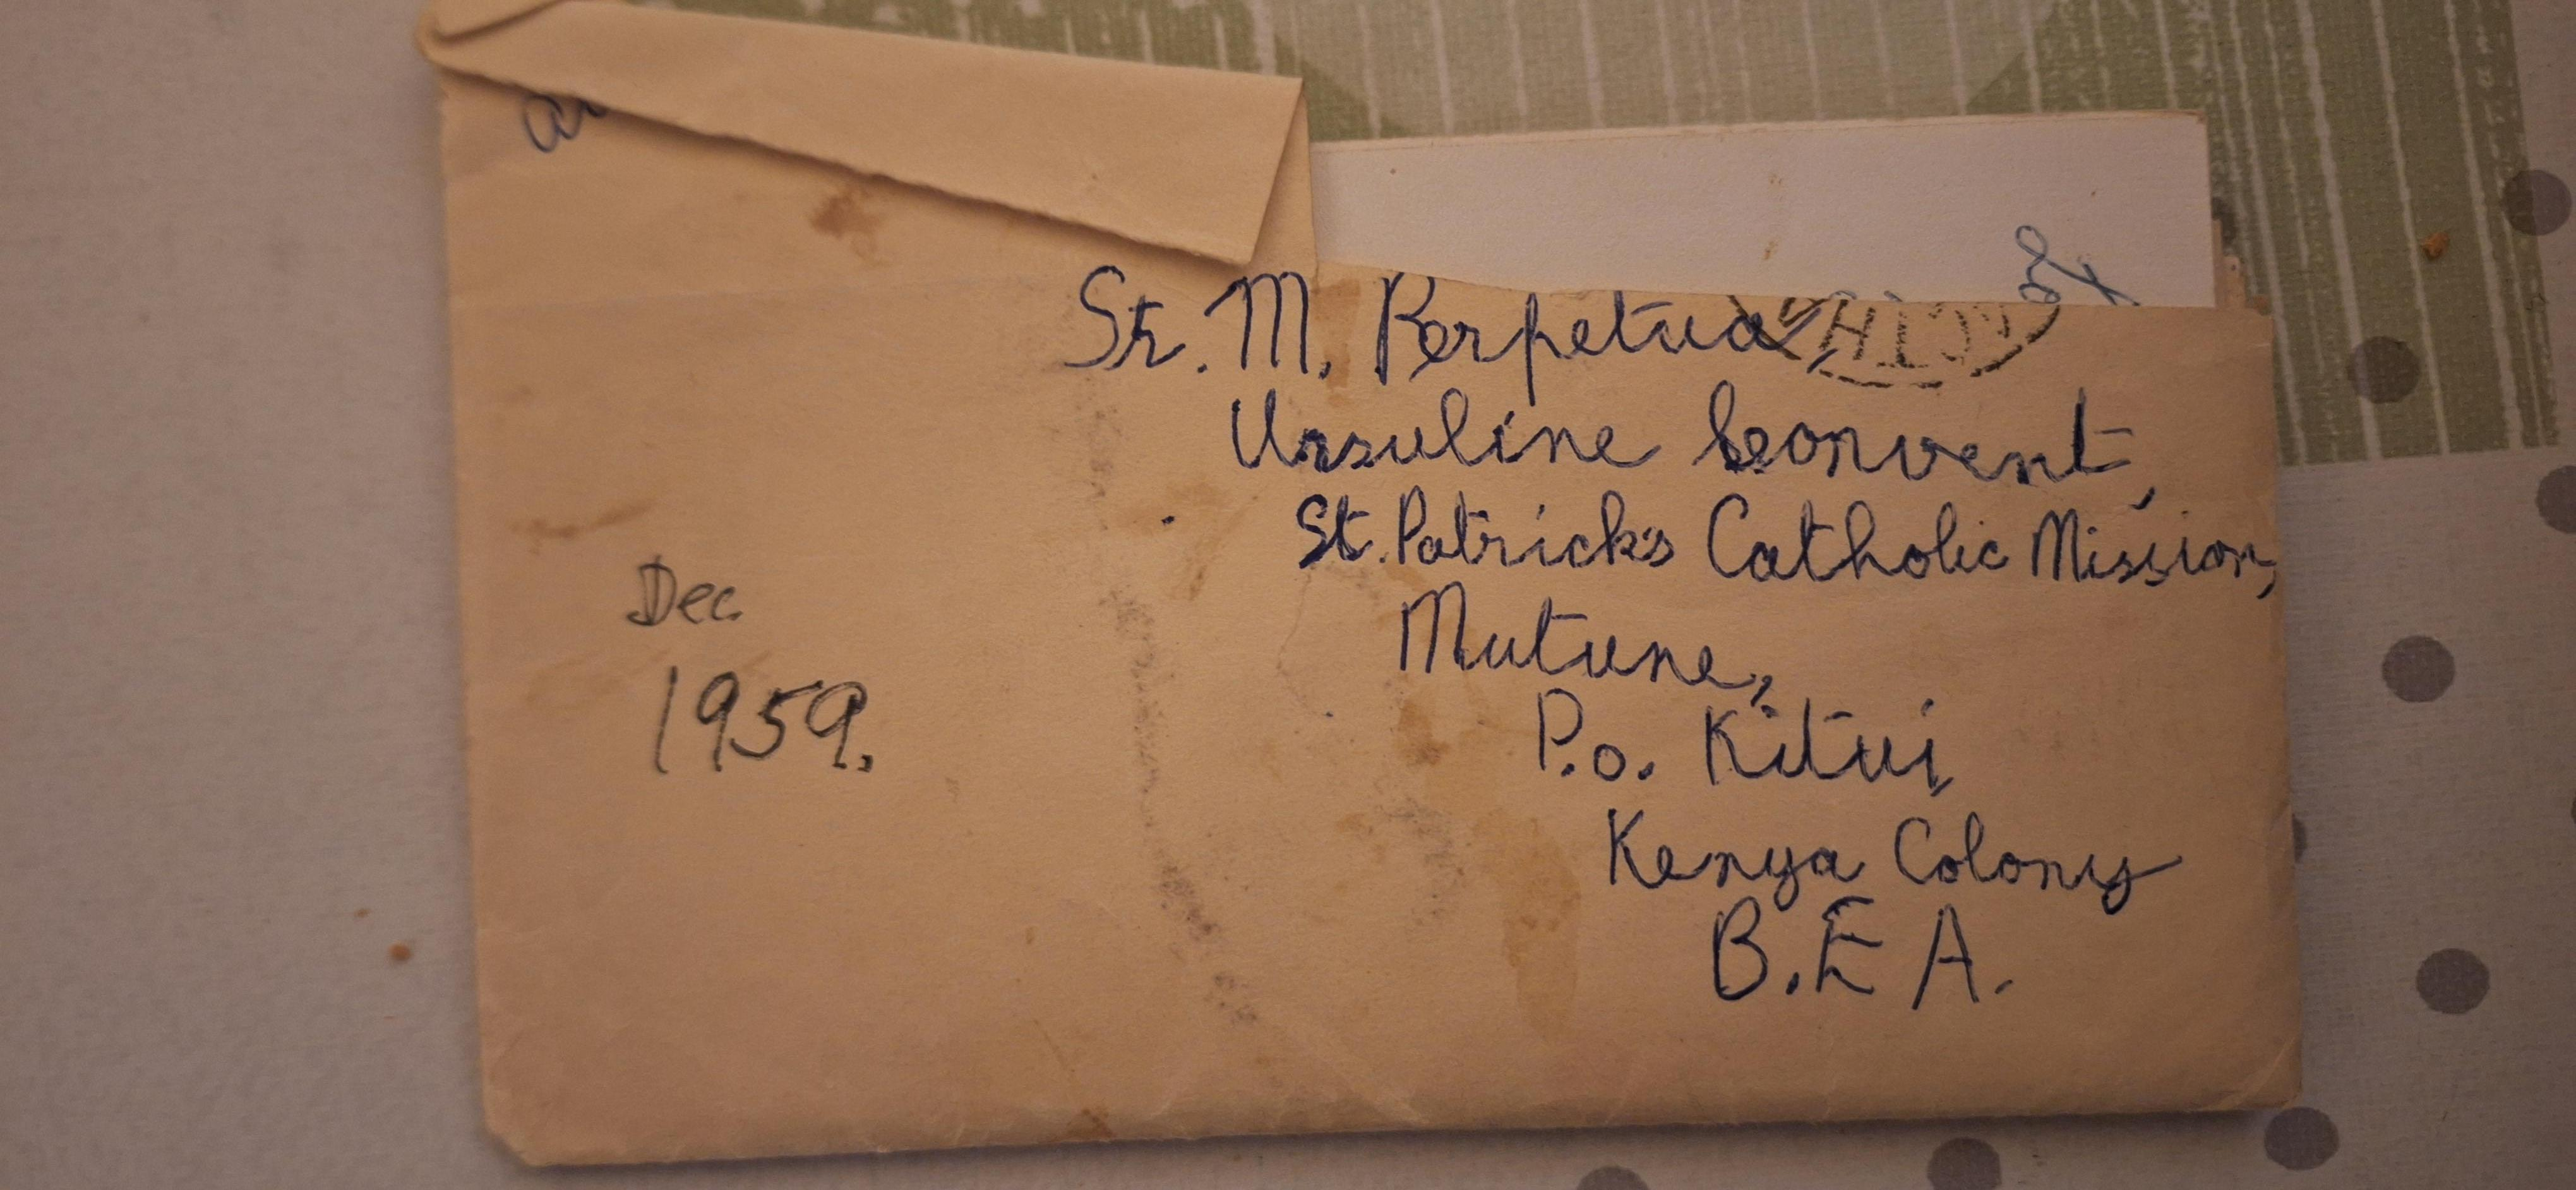 Sr. M. Perpetua,
Ursuline Convent,
St. Patricks Catholic Mission,
Mutune,
P.o. Kitui
Kenya Colony
B.E A.
Dec
1959.